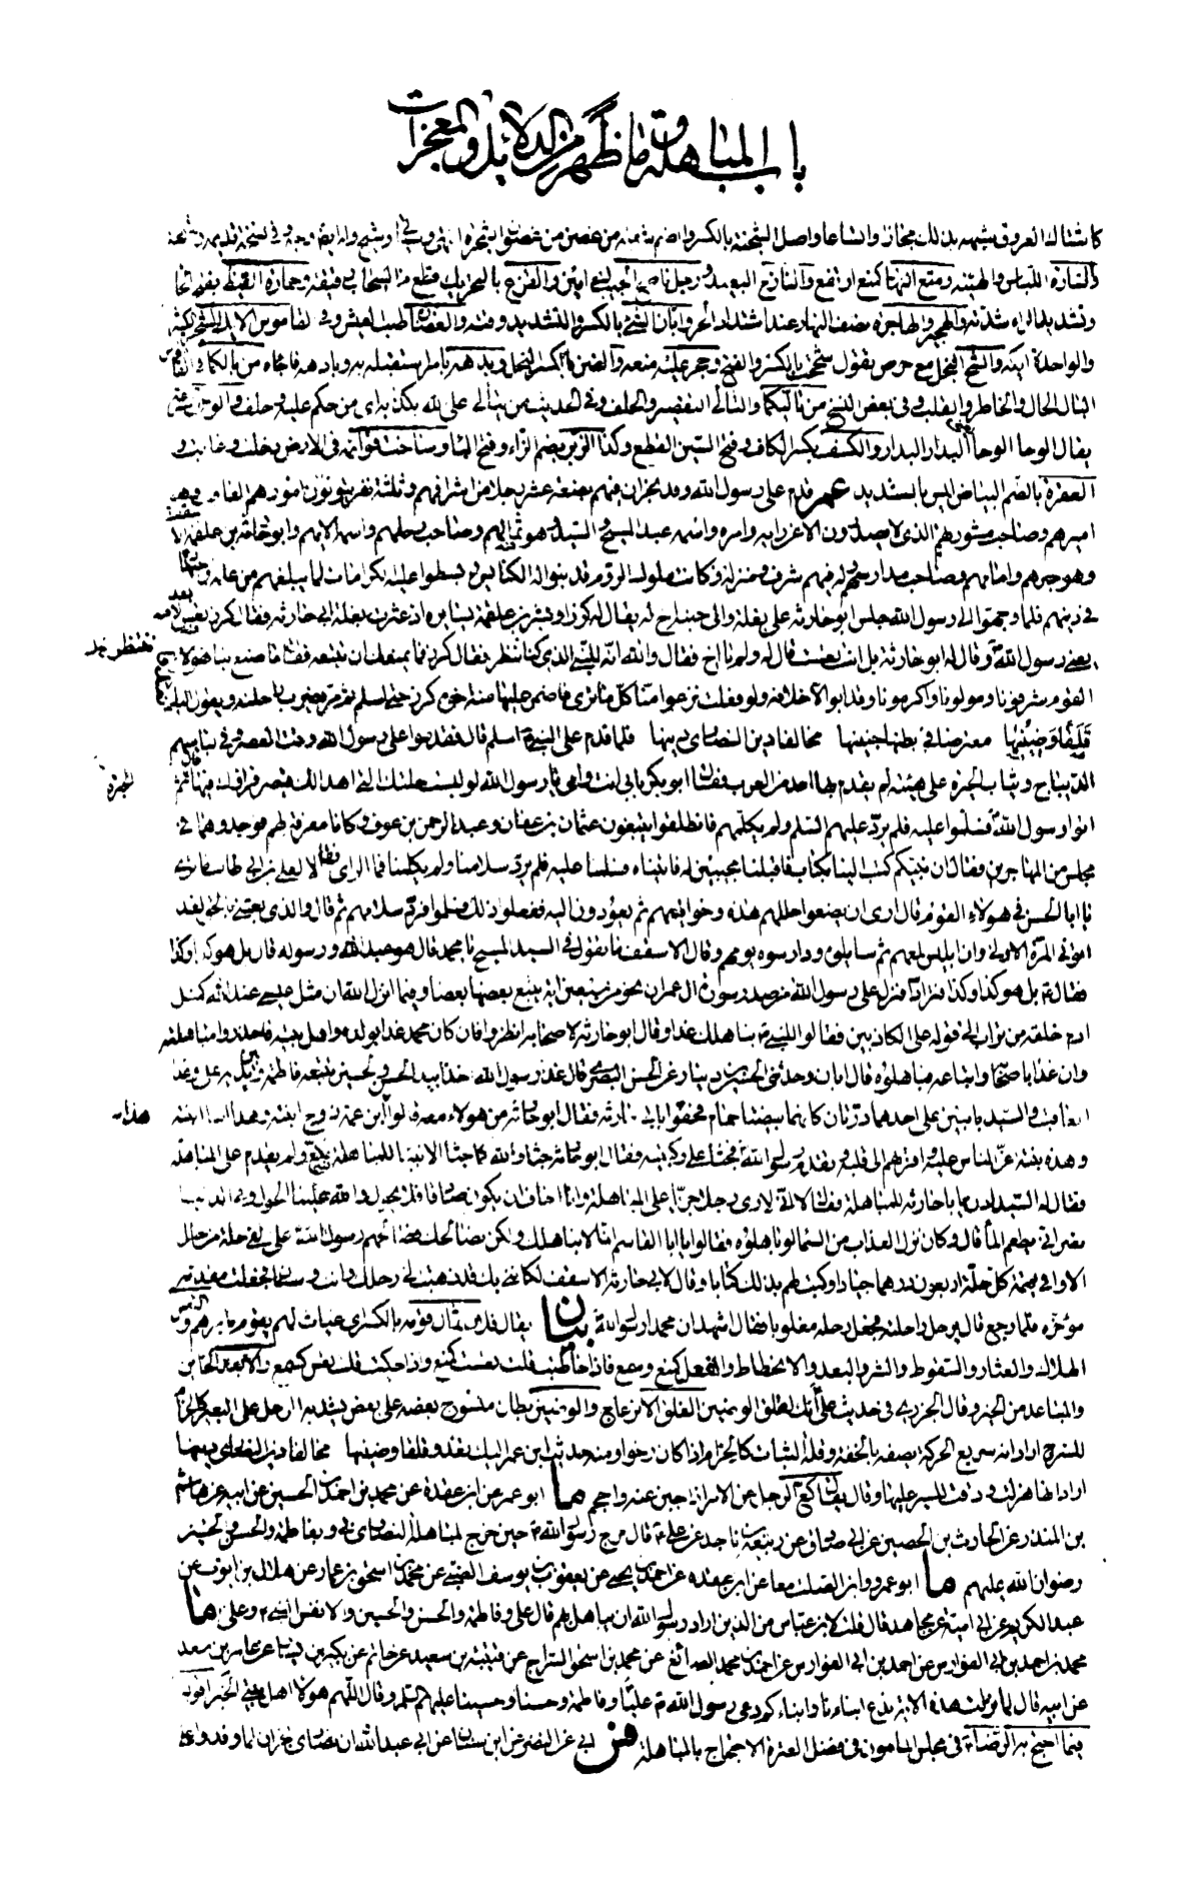 باب المباهلة وما ظهر من الدلائل والمعجزات
كاشتباك العروق شبهه بذلك مجازا واتساعا واصل الشجنة بالكسر والضم شعبة من غصن من غصون الشجرة انتهى
والشارة اللباس والهيئة ومتع النهار كمنع ارتفع والنازح البعيد ورجل ناصح الجيب اي امين والقزع بالتحريك قطع من السحاب
وتشديد الراء شدته والهجير والهاجرة نصف النهار عند اشتداد الحر وابان الشيء بالكسر والتشديد وقته
والواحدة ايكة والشح البخل مع حرص يقول شححت بالكسر والفتح وحجر عليه منعه والضنين البخيل وبدهه بامر استقبله به وبادهه فاجأه
البال الحال والخاطر والقلب وفي بعض النسخ من تأليكما والتألي التقصير والحلف وفي الحديث من يتألى على الله يكذبه اي من حكم عليه وحلف
يقال الوحا الوحا البدار البدار والكسف بكسر الكاف وفتح السين القطع وكذا الزبر بضم الزاء وفتح الباء وساخت قوائمه في الارض دخلت وغابت و
العفرة بالضم البياض ليس بالشديد عم قدم على رسول الله وفد نجران فيهم بضعة عشر رجلا من اشرافهم وثلثة نفر يتولون امورهم العاقب وهو
اميرهم وصاحب مشورتهم الذي لا يصدرون الا عن رايه وامره واسمه عبد المسيح والسيد وهو ثمالهم وصاحب رحلهم واسمه الايهم وابو حارثة بن علقمة
وهو حبرهم وامامهم وصاحب مدارسهم وله فيهم شرف ومنزلة وكانت ملوك الروم قد بنوا له الكنائس وبسطوا عليه الكرامات لما يبلغهم من علمه واجتهاده
في دينهم فلما وجهوا الى رسول الله جلس ابو حارثة على بغلة والى جنبه اخ له يقال له كرز او بشر بن علقمة يسايره اذ عثرت بغلة ابي حارثة فقال كرز تعس الابعد
يعني رسول الله فقال له ابو حارثة بل انت تعست قال له ولم يا اخ فقال والله انه للنبي الذي كنا ننتظر فقال كرز فما يمنعك ان تتبعه فقال ما صنع بنا هؤلاء
القوم شرفونا ومولونا واكرمونا وقد ابوا الا خلافه ولو فعلت نزعوا منا كل ما ترى فاضمر عليها منه اخوه كرز حتى اسلم
قلقا وضينها معترضا في بطنها جنينها مخالفا دين النصارى دينها فلما قدم على النبي اسلم قال فقدموا على رسول الله وقت العصر وفي لباسهم
الديباج وثياب الحبرة على هيئة لم يقدم بها احد من العرب فقال ابو بكر بابي انت وامي يا رسول الله لو لبست حلتك التي اهداها لك قيصر فراوك فيها قال ثم
اتوا رسول الله فسلموا عليه فلم يرد عليهم السلام ولم يكلمهم فانطلقوا يتبعون عثمان بن عفان وعبد الرحمن بن عوف وكانا معرفة لهم فوجدوهما في
مجلس من المهاجرين فقالوا ان نبيكم كتب الينا بكتاب فاقبلنا مجيبين له فاتيناه وسلمنا عليه فلم يرد سلامنا ولم يكلمنا فما الراي فقالا لعلي بن ابي طالب ما ترى
يا ابا الحسن في هؤلاء القوم قال ارى ان يضعوا حللهم هذه وخواتيمهم ثم يعودون اليه ففعلوا ذلك فسلموا فرد سلامهم ثم قال والذي بعثني بالحق لقد
اتوني المرة الاولى وان ابليس لمعهم ثم سايلوه ودارسوه يومهم وقال الاسقف ما تقول في السيد المسيح يا محمد قال هو عبد الله ورسوله قال بل هو كذا وكذا
فقال بل هو كذا وكذا فترادا فنزل على رسول الله من صدر سورة ال عمران نحو من سبعين اية يتبع بعضها بعضا وفيما انزل الله ان مثل عيسى عند الله كمثل
ادم خلقه من تراب الى قوله على الكاذبين فقالوا للنبي نباهلك غدا وقال ابو حارثة لاصحابه انظروا فان كان محمد غدا بولده واهل بيته فاحذروا مباهلته
وان غدا باصحابه واتباعه فباهلوه قال ابان وحدثني الحسن بن دينار عن الحسن البصري قال غدا رسول الله اخذا بيد الحسن والحسين تتبعه فاطمة وبين يديه علي وغدا
العاقب والسيد بابنين على احدهما درتان كانهما بيضتا حمام فحفوا بابي حارثة فقال ابو حارثة من هؤلاء معه قالوا ابن عمه زوج ابنته وهذان ابنا ابنته
وهذه بنته اعز الناس عليه واقربهم الى قلبه وتقدم رسول الله فجثا على ركبتيه فقال ابو حارثة جثا والله كما جثا الانبياء للمباهلة فكع ولم يقدم على المباهلة
فقال له السيد ادن يا ابا حارثة للمباهلة فقال لا اني لارى رجلا جريا على المباهلة وانا اخاف ان يكون صادقا فلا يحول والله علينا الحول وفي الدنيا
نصراني يطعم الماء قال وكان نزل العذاب من السماء لو باهلوه فقالوا يا ابا القاسم انا لا نباهلك ولكن نصالحك فصالحهم رسول الله على الفي حلة من حلل
الاواقي قيمة كل حلة اربعون درهما جيادا وكتب لهم بذلك كتابا وقال لابي حارثة الاسقف لكانني بك قد ذهبت الى رحلك وانت وسنان فجعلت مقدمه
مؤخره فلما رجع قام يرحل راحلته فجعل رحله مقلوبا فقال اشهد ان محمدا رسول الله بيان يقال فلان ثمال قومه بالكسر اي غياث لهم يقوم بامرهم والتعس
الهلاك والعثار والسقوط والشر والبعد والانحطاط والفعل كمنع وسمع فاذا خاطبت قلت تعست كمنع واذا حكيت قلت تعس كسمع والابعد الخائن
والمتباعد من الخير وقال الجزري في حديث علي انك لقلق الوضين القلق الانزعاج والوضين بطان منسوج بعضه على بعض يشد به الرحل على البعير كالحزام
للسرج اراد انه سريع الحركة يصفه بالخفة وقلة الثبات كالحزام اذا كان رخوا ومنه حديث ابن عمر اليك تعدو قلقا وضينها مخالفا دين النصارى دينها
اراد انها هزلت ودقت للسير عليها وقال يقال كع الرجل عن الامر اذا جبن عنه واحجم ما ابو عمر عن ابن عقدة عن محمد بن احمد بن الحسين عن ابيه عن هاشم
بن المنذر عن الحارث بن الحصين عن ابي صادق عن ربيعة بن ناجد عن علي قال خرج رسول الله حين خرج لمباهلة النصارى بي وبفاطمة والحسن والحسين
رضوان الله عليهم ما ابو عمرو وابن الصلت معا عن ابن عقدة عن احمد بن يحيى عن يعقوب بن يوسف الضبي عن محمد بن اسحق بن عمار عن هلال بن ايوب عن
عبد الكريم عن ابي امية عن مجاهد قال قلت لابن عباس من الذين اراد رسول الله ان يباهل بهم قال علي وفاطمة والحسن والحسين والانفس النبي وعلي ما
محمد بن احمد بن ابي الفوارس عن احمد بن محمد الصائغ عن محمد بن اسحق السراج عن قتيبة بن سعيد عن حاتم عن بكير بن مسمار عن عامر بن سعد
عن ابيه قال لما نزلت هذه الاية ندع ابناءنا وابناءكم دعى رسول الله عليا وفاطمة وحسنا وحسينا عليهم السلام وقال اللهم هؤلاء اهلي
فيما احتج به الرضا في مجلس المامون في فضل العترة الاحتجاج بالمباهلة فس ابي عن النضر عن ابن سنان عن ابي عبد الله ان نصارى نجران لما وفدوا على